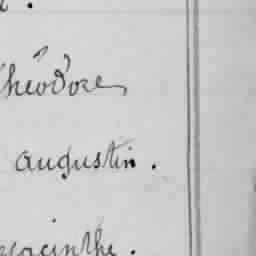 Théodore
augustin.
hyacinthe.